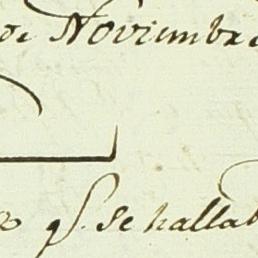 de Noviembre
qͤ. se hallab